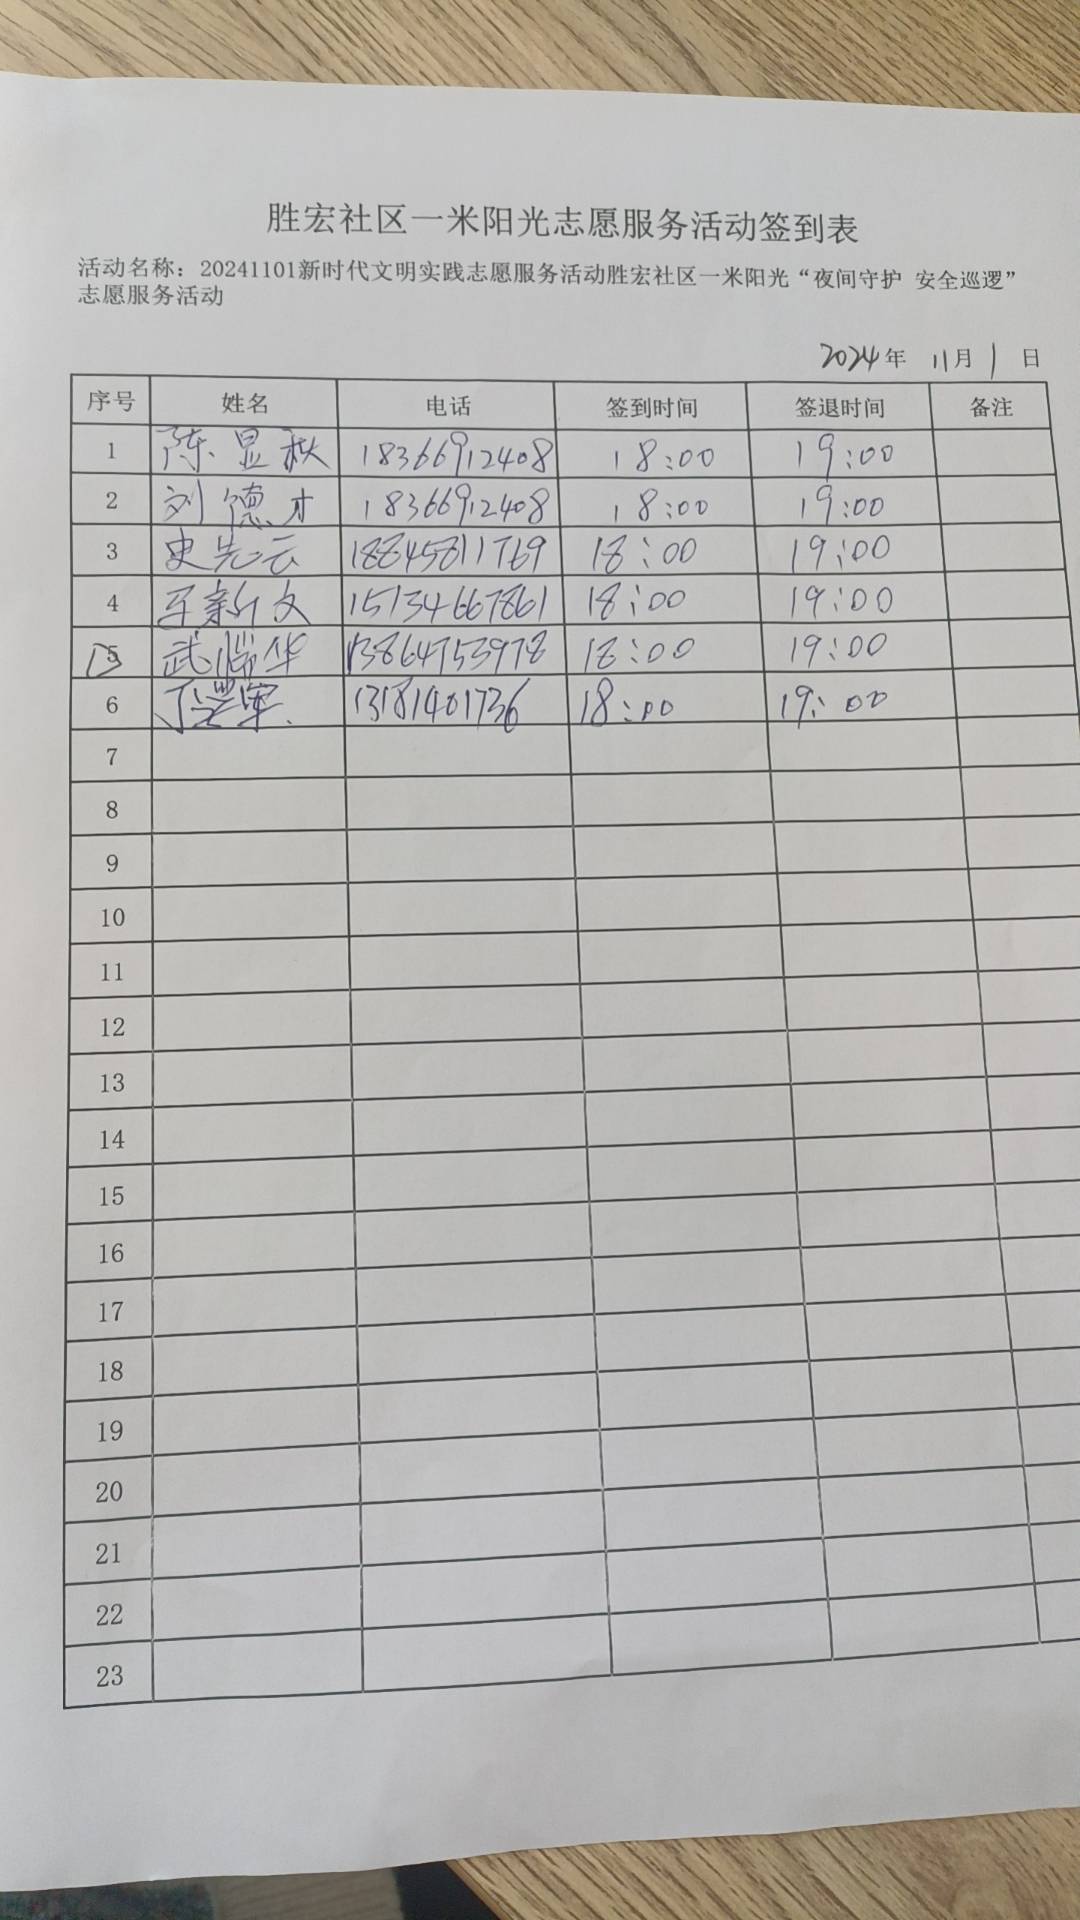 胜宏社区一米阳光志愿服务活动签到表
活动名称：20241101新时代文明实践志愿服务活动胜宏社区一米阳光“夜间守护 安全巡逻”
志愿服务活动
2024年 11月 1 日
序号 姓名 电话 签到时间 签退时间 备注
1 陈显秋 18366912408 18:00 19:00
2 刘德才 18366912408 18:00 19:00
3 史先云 18845811769 18:00 19:00
4 王新文 15134667861 18:00 19:00
5 武瑞华 13864753978 18:00 19:00
6 13181401736 18:00 19:00
7
8
9
10
11
12
13
14
15
16
17
18
19
20
21
22
23